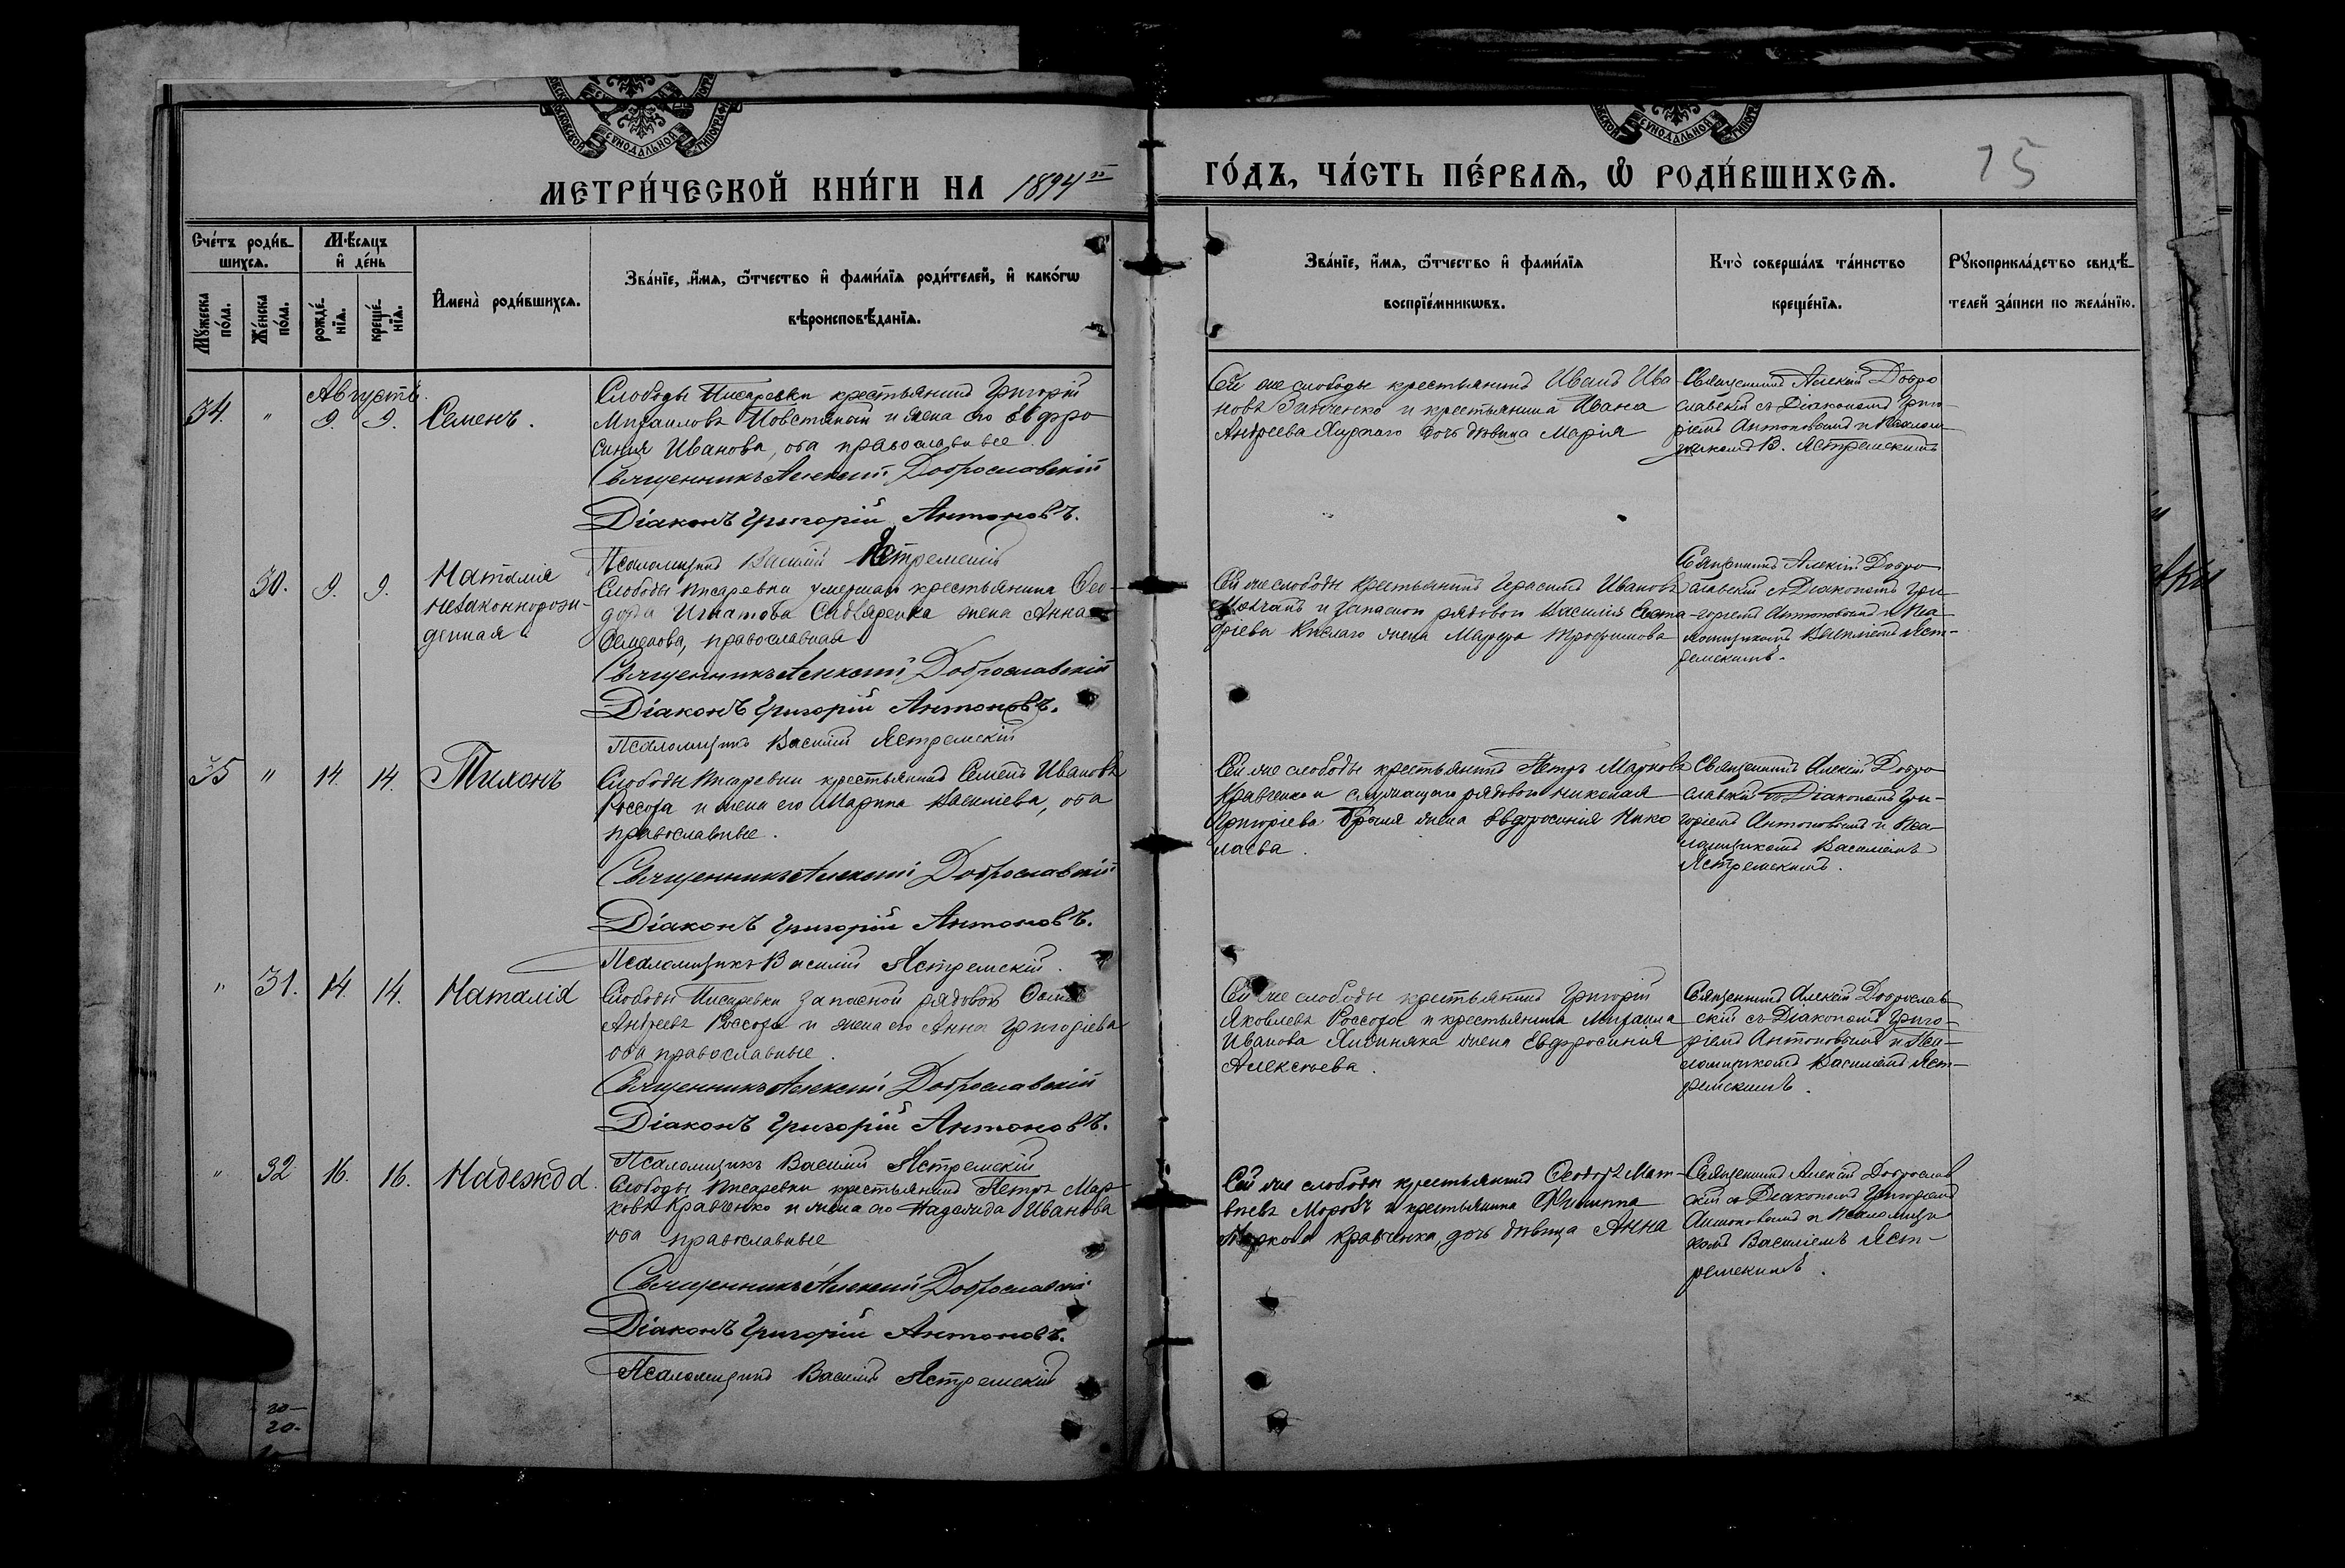 МЕТРИ́ЧЕСКОЙ КНИ́ГИ НА 1894й ГО́ДЪ, ЧА́СТЬ ПЕ́РВАѦ, Ѽ РОДИ́ВШИХСѦ. 75
Сче́тъ роди́в-
шихсѧ.
Мѣ́сяцъ
и҆ де́нь
Мꙋ́жеска по́ла.
Же́нска по́ла.
рожде́нїѧ.
креще́нїѧ.
И҆мена̀ роди́вшихсѧ.
Зва́нїе, и҆́мѧ, ѻ҆́тчество и҆ фами́лїѧ роди́телей, и҆ како́гѡ
вѣроисповѣ́данїѧ.
Зва́нїе, и҆́мѧ, ѻ҆́тчество и҆ фами́лїѧ
воспрїе́мникѡвъ.
Кто̀ соверша́лъ та́инство
креще́нїѧ.
Рꙋкоприкла́дство свидѣ́-
телей за́писи по жела́нїю.
Августъ
34. " 9. 9. Семенъ.
Слободы Писаревки крестьянинъ Григорій
Михаиловъ и жена его Евфро
синия Иванова, оба православные.
Священникъ Алексій Доброславскій
Діаконъ Григорій Антоновъ.
Псаломщикъ Василій Ястремскій
Сей же слободы крестьянинъ Иванъ Ива
новъ Зинченко и крестьянина Ивана
Андреева дочь дѣвица Марія
Священникъ Алексій Добро
славскій съ Діакономъ Григо
ріемъ Антоновымъ и Псалом
щикомъ В. Ястремскимъ
30. 9. 9. Наталія
незаконнорож-
денная
Слободы Писаревки умершаго крестьянина Ѳео-
дора Игнатова жена Анна
Семенова, православная
Священникъ Алексій Доброславскій
Діаконъ Григорій Антоновъ.
Псаломщикъ Василій Ястремскій
Сей же слободы крестьянинъ Герасимъ Ивановъ
и запасного рядового Василія
Кислаго жена Марфа Трофимова
Священникъ Алексій Добро
славскій съ Діакономъ Гри-
горіемъ Антоновымъ и Пса
ломщикомъ Василіемъ Яст-
ремскимъ.
35 " 14. 14. Тихонъ
Слободы Писаревки крестьянинъ Семенъ Ивановъ
Россоха и жена его Марина Василіева, оба
православные.
Священникъ Алексій Доброславскій
Діаконъ Григорій Антоновъ.
Псаломщикъ Василій Ястремскій.
Сей же слободы крестьянинъ Петръ Марковъ
Кравченко и служащаго рядового Николая
Григоріева жена Евфросинія Нико
лаева.
Священникъ Алексій Добро
славскій съ Діакономъ Гри-
горіемъ Антоновымъ и Пса-
ломщикомъ Василіемъ
Ястремскимъ.
" 31. 14. 14. Наталія
Слободы Писаревки запасной рядовой
Андреевъ Россоха и жена его Анна Григоріева
оба православные.
Священникъ Алексій Доброславскій
Діаконъ Григорій Антоновъ.
Псаломщикъ Василій Ястремскій
Сей же слободы крестьянинъ Григорій
Яковлевъ Россоха и крестьянина Михаила
Иванова жена Евфросинія
Алексѣева.
Священникъ Алексій Доброслав
скій съ Діакономъ Григо-
ріемъ Антоновымъ и Пса-
ломщикомъ Василіемъ Яст-
ремскимъ.
" 32 16. 16. Надежда.
Слободы Писаревки крестьянинъ Петръ Мар-
ковъ Кравченко и жена его Надежда Иванова
оба православные
Священникъ Алексій Доброславскій
Діаконъ Григорій Антоновъ.
Псаломщикъ Василій Ястремскій
Сей же слободы крестьянинъ Ѳеодоръ Мат-
вѣевъ Морозъ и крестьянина Филиппа
Маркова Кравченка дочь дѣвица Анна
Священникъ Алексій Доброслав
скій съ Діакономъ Григоріемъ
Антоновымъ и Псаломщи
комъ Василіемъ Яст-
ремскимъ.
20-
20-